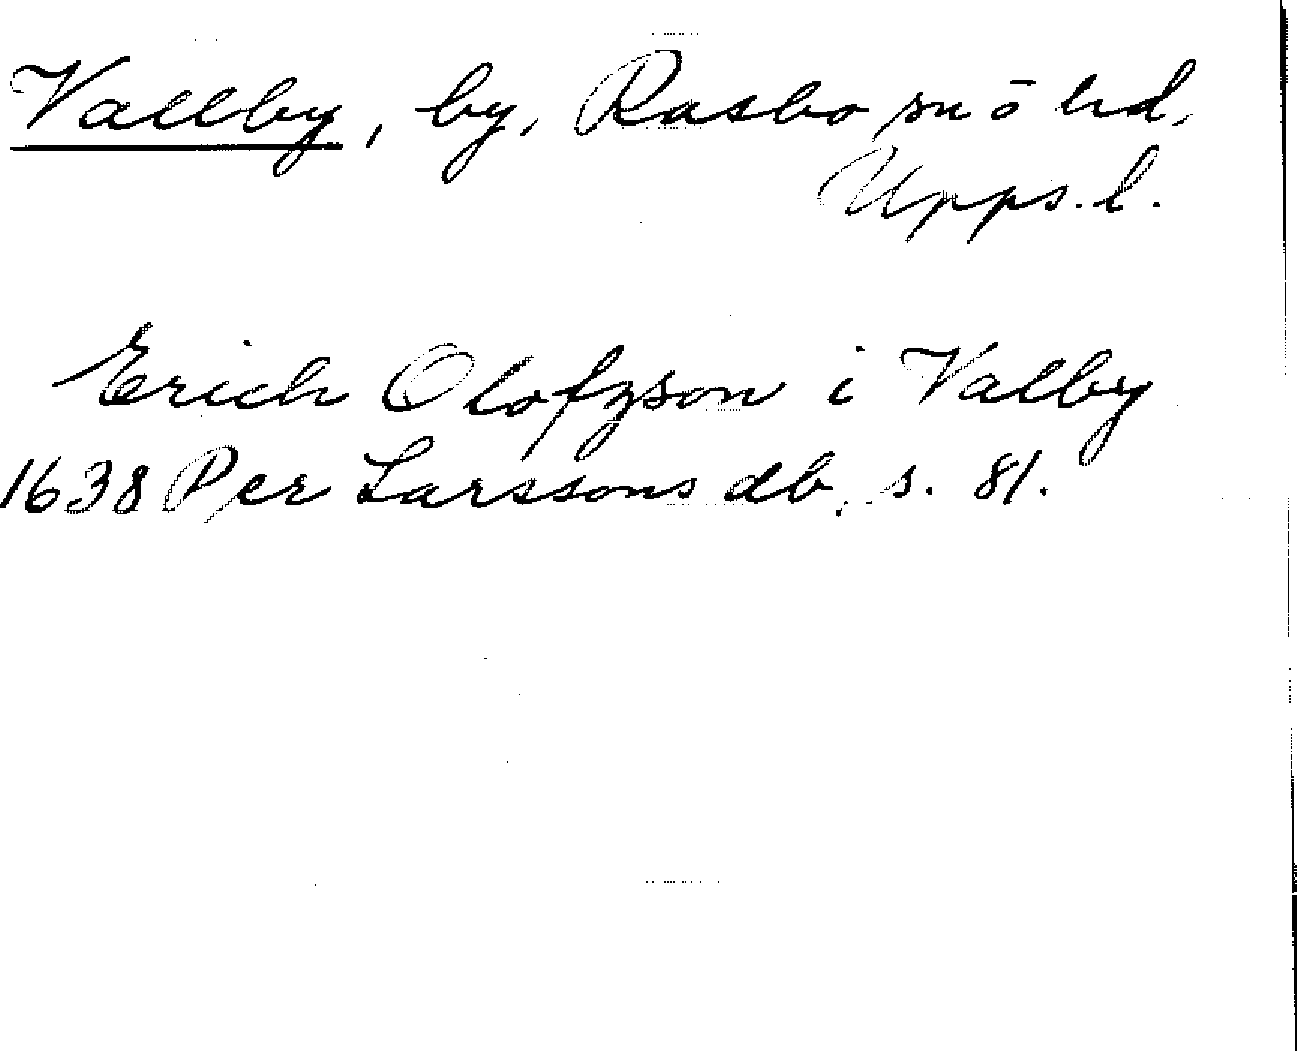 Vallby, by, Rasbo sn o hd,
Upps. l.
Erich Olofzson i Valby
1638 Per Larssons db, s. 81.